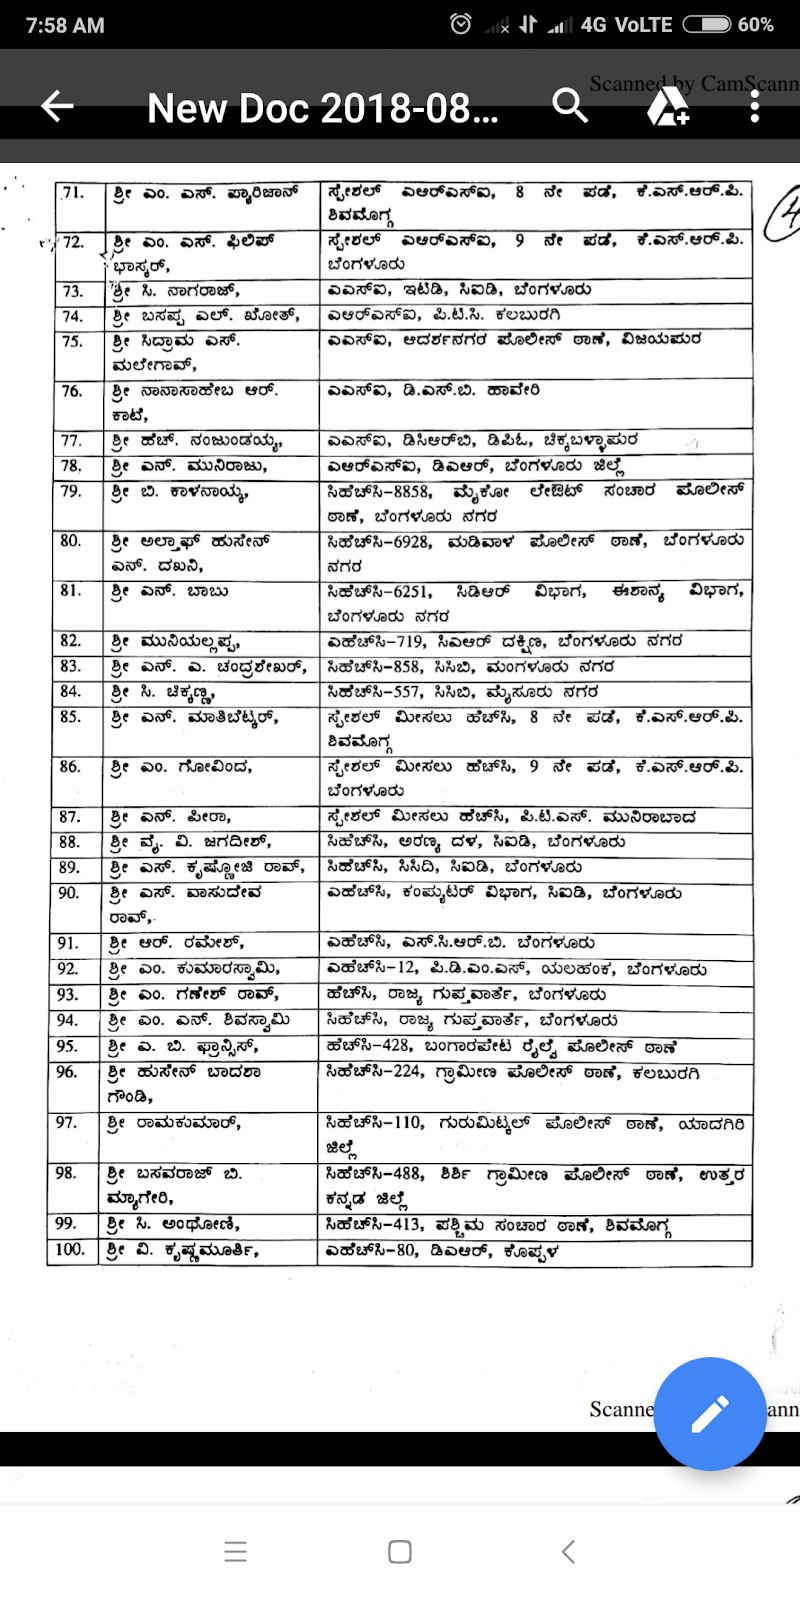 7:58 AM 4G VoLTE 60%
Scanned by CamScann
New Doc 2018-08...
71. ಶ್ರೀ ಎಂ. ಎಸ್. ಪ್ಯಾರಿಜಾನ್ ಸ್ಪೇಶಲ್ ಎಆರ್‌ಎಸ್‌ಐ, 8 ನೇ ಪಡೆ, ಕೆ.ಎಸ್.ಆರ್.ಪಿ.
ಶಿವಮೊಗ್ಗ
72. ಶ್ರೀ ಎಂ. ಎಸ್. ಫಿಲಿಪ್ ಸ್ಪೇಶಲ್ ಎಆರ್‌ಎಸ್‌ಐ, 9 ನೇ ಪಡೆ, ಕೆ.ಎಸ್.ಆರ್.ಪಿ.
ಭಾಸ್ಕರ್, ಬೆಂಗಳೂರು
73. ಶ್ರೀ ಸಿ. ನಾಗರಾಜ್, ಎಎಸ್‌ಐ, ಇಟಿಡಿ, ಸಿಐಡಿ, ಬೆಂಗಳೂರು
74. ಶ್ರೀ ಬಸಪ್ಪ ಎಲ್. ಖೋತ್, ಎಆರ್‌ಎಸ್‌ಐ, ಪಿ.ಟಿ.ಸಿ. ಕಲಬುರಗಿ
75. ಶ್ರೀ ಸಿದ್ರಾಮ ಎಸ್. ಎಎಸ್‌ಐ, ಆದರ್ಶನಗರ ಪೊಲೀಸ್ ಠಾಣೆ, ವಿಜಯಪುರ
ಮಲೇಗಾವ್,
76. ಶ್ರೀ ನಾನಾಸಾಹೇಬ ಆರ್. ಎಎಸ್‌ಐ, ಡಿ.ಎಸ್.ಬಿ. ಹಾವೇರಿ
ಕಾಟೆ,
77. ಶ್ರೀ ಹೆಚ್. ನಂಜುಂಡಯ್ಯ, ಎಎಸ್‌ಐ, ಡಿಸಿಆರ್‌ಬಿ, ಡಿಪಿಓ, ಚಿಕ್ಕಬಳ್ಳಾಪುರ
78. ಶ್ರೀ ಎನ್. ಮುನಿರಾಜು, ಎಆರ್‌ಎಸ್‌ಐ, ಡಿಎಆರ್, ಬೆಂಗಳೂರು ಜಿಲ್ಲೆ
79. ಶ್ರೀ ಬಿ. ಕಾಳನಾಯ್ಕ, ಸಿಹೆಚ್‌ಸಿ-8858, ಮೈಕೋ ಲೇಔಟ್ ಸಂಚಾರ ಪೊಲೀಸ್
ಠಾಣೆ, ಬೆಂಗಳೂರು ನಗರ
80. ಶ್ರೀ ಅಲ್ತಾಫ್ ಹುಸೇನ್ ಸಿಹೆಚ್‌ಸಿ-6928, ಮಡಿವಾಳ ಪೊಲೀಸ್ ಠಾಣೆ, ಬೆಂಗಳೂರು
ಎನ್. ದಖನಿ, ನಗರ
81. ಶ್ರೀ ಎನ್. ಬಾಬು ಸಿಹೆಚ್‌ಸಿ-6251, ಸಿಡಿಆರ್ ವಿಭಾಗ, ಈಶಾನ್ಯ ವಿಭಾಗ,
ಬೆಂಗಳೂರು ನಗರ
82. ಶ್ರೀ ಮುನಿಯಲ್ಲಪ್ಪ, ಎಹೆಚ್‌ಸಿ-719, ಸಿಎಆರ್ ದಕ್ಷಿಣ, ಬೆಂಗಳೂರು ನಗರ
83. ಶ್ರೀ ಎನ್. ಎ. ಚಂದ್ರಶೇಖರ್, ಸಿಹೆಚ್‌ಸಿ-858, ಸಿಸಿಬಿ, ಮಂಗಳೂರು ನಗರ
84. ಶ್ರೀ ಸಿ. ಚಿಕ್ಕಣ್ಣ, ಸಿಹೆಚ್‌ಸಿ-557, ಸಿಸಿಬಿ, ಮೈಸೂರು ನಗರ
85. ಶ್ರೀ ಎನ್. ಮಾತಿಬೆಟ್ಕರ್, ಸ್ಪೇಶಲ್ ಮೀಸಲು ಹೆಚ್‌ಸಿ, 8 ನೇ ಪಡೆ, ಕೆ.ಎಸ್.ಆರ್.ಪಿ.
ಶಿವಮೊಗ್ಗ
86. ಶ್ರೀ ಎಂ. ಗೋವಿಂದ, ಸ್ಪೇಶಲ್ ಮೀಸಲು ಹೆಚ್‌ಸಿ, 9 ನೇ ಪಡೆ, ಕೆ.ಎಸ್.ಆರ್.ಪಿ.
ಬೆಂಗಳೂರು
87. ಶ್ರೀ ಎನ್. ಪೀರಾ, ಸ್ಪೇಶಲ್ ಮೀಸಲು ಹೆಚ್‌ಸಿ, ಪಿ.ಟಿ.ಎಸ್. ಮುನಿರಾಬಾದ
88. ಶ್ರೀ ವೈ. ವಿ. ಜಗದೀಶ್, ಸಿಹೆಚ್‌ಸಿ, ಅರಣ್ಯ ದಳ, ಸಿಐಡಿ, ಬೆಂಗಳೂರು
89. ಶ್ರೀ ಎಸ್. ಕೃಷ್ಣೋಜಿ ರಾವ್, ಸಿಹೆಚ್‌ಸಿ, ಸಿಸಿದಿ, ಸಿಐಡಿ, ಬೆಂಗಳೂರು
90. ಶ್ರೀ ಎಸ್. ವಾಸುದೇವ ಎಹೆಚ್‌ಸಿ, ಕಂಪ್ಯುಟರ್ ವಿಭಾಗ, ಸಿಐಡಿ, ಬೆಂಗಳೂರು
ರಾವ್,
91. ಶ್ರೀ ಆರ್. ರಮೇಶ್, ಎಹೆಚ್‌ಸಿ, ಎಸ್.ಸಿ.ಆರ್.ಬಿ. ಬೆಂಗಳೂರು
92. ಶ್ರೀ ಎಂ. ಕುಮಾರಸ್ವಾಮಿ, ಎಹೆಚ್‌ಸಿ-12, ಪಿ.ಡಿ.ಎಂ.ಎಸ್, ಯಲಹಂಕ, ಬೆಂಗಳೂರು
93. ಶ್ರೀ ಎಂ. ಗಣೇಶ್ ರಾವ್, ಹೆಚ್‌ಸಿ, ರಾಜ್ಯ ಗುಪ್ತವಾರ್ತೆ, ಬೆಂಗಳೂರು
94. ಶ್ರೀ ಎಂ. ಎನ್. ಶಿವಸ್ವಾಮಿ ಸಿಹೆಚ್‌ಸಿ, ರಾಜ್ಯ ಗುಪ್ತವಾರ್ತೆ, ಬೆಂಗಳೂರು
95. ಶ್ರೀ ಎ. ಬಿ. ಫ್ರಾನ್ಸಿಸ್, ಹೆಚ್‌ಸಿ-428, ಬಂಗಾರಪೇಟ ರೈಲ್ವೆ ಪೊಲೀಸ್ ಠಾಣೆ
96. ಶ್ರೀ ಹುಸೇನ್ ಬಾದಶಾ ಸಿಹೆಚ್‌ಸಿ-224, ಗ್ರಾಮೀಣ ಪೊಲೀಸ್ ಠಾಣೆ, ಕಲಬುರಗಿ
ಗೌಂಡಿ,
97. ಶ್ರೀ ರಾಮಕುಮಾರ್, ಸಿಹೆಚ್‌ಸಿ-110, ಗುರುಮಿಟ್ಕಲ್ ಪೊಲೀಸ್ ಠಾಣೆ, ಯಾದಗಿರಿ
ಜಿಲ್ಲೆ
98. ಶ್ರೀ ಬಸವರಾಜ್ ಬಿ. ಸಿಹೆಚ್‌ಸಿ-488, ಶಿರ್ಶಿ ಗ್ರಾಮೀಣ ಪೊಲೀಸ್ ಠಾಣೆ, ಉತ್ತರ
ಮ್ಯಾಗೇರಿ, ಕನ್ನಡ ಜಿಲ್ಲೆ
99. ಶ್ರೀ ಸಿ. ಅಂಥೋಣಿ, ಸಿಹೆಚ್‌ಸಿ-413, ಪಶ್ಚಿಮ ಸಂಚಾರ ಠಾಣೆ, ಶಿವಮೊಗ್ಗ
100. ಶ್ರೀ ವಿ. ಕೃಷ್ಣಮೂರ್ತಿ, ಎಹೆಚ್‌ಸಿ-80, ಡಿಎಆರ್, ಕೊಪ್ಪಳ
Scanne ann